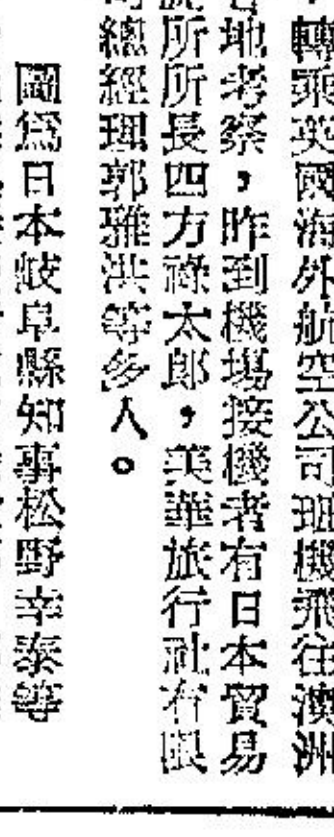 轉乘英國海外航空公司班機飛往澳洲
地考察，昨到機場接機者有日本貿易
所所長四方祿太郎，美華旅行社有限
總經理郭雅洪等多人。
圖爲日本岐阜縣知事松野幸泰等